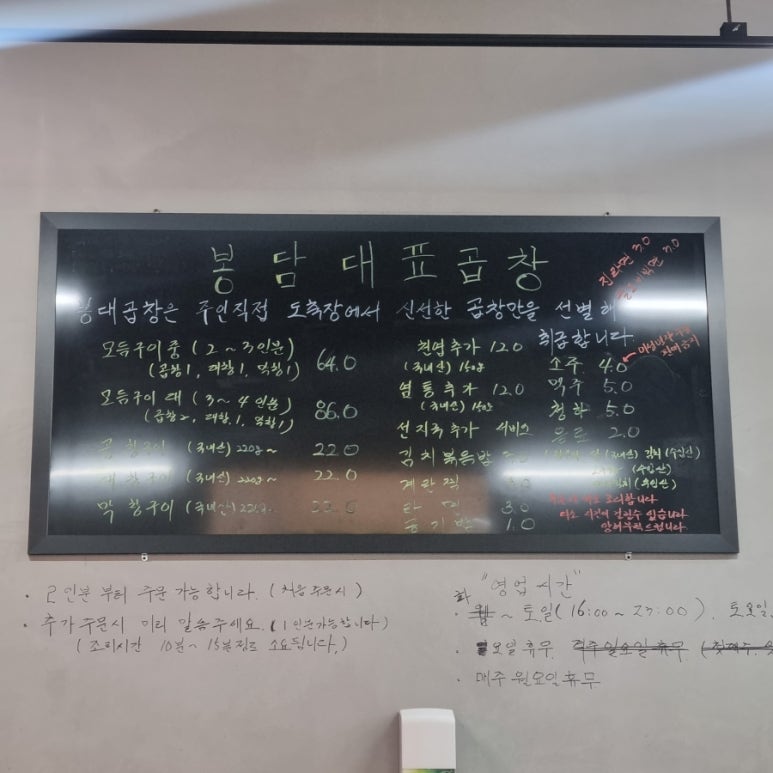 봉담대표곱창
진라면 3.0
봉대곱창은 주인직접 도축장에서 신선한 곱창만을 선별해
취급합니다
모듬구이 중 (2~3인분) 64.0
(곱창1, 대창1, 막창1)
모듬구이 대 (3~4인분) 86.0
(곱창2, 대창1, 막창1)
곱창구이 (국내산) 220g~ 22.0
대창구이 (국내산) 220g~ 22.0
막창구이 (국내산) 220g~ 22.0
천엽추가 12.0
(국내산) 150g
염통추가 12.0
(국내산) 150g
선지국추가 서비스
김치볶음밥
계란찜
라면 3.0
공기밥 1.0
소주 4.0
맥주 5.0
청하 5.0
음료 2.0
(국내산) 김치 (수입산)
(수입산)
(수입산)
조리합니다
다소 시간이 걸릴수 있습니다
양해부탁드립니다
· 2인분 부터 주문 가능합니다. (처음 주문시)
· 추가 주문시 미리 말씀주세요. (1인분가능합니다)
(조리시간 10분~15분정도 소요됩니다.)
"영업시간"
화
· 월 ~ 토일 (16:00~23:00). 토요일,
· 일요일 휴무 격주 일요일 휴무
· 매주 월요일 휴무